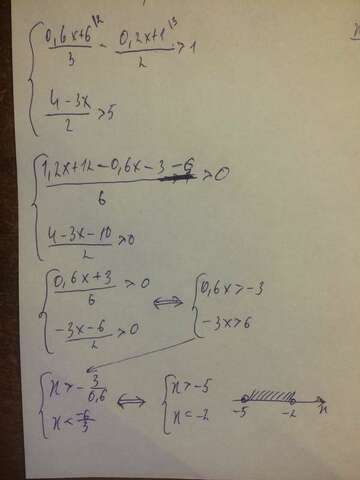 { (0,6x+6)/3 ^(2 - (0,2x+1)/2 ^(3 > 1
(4-3x)/2 > 5
{ (1,2x+12-0,6x-3-6)/6 > 0
(4-3x-10)/2 > 0
{ (0,6x+3)/6 > 0 ⟺ { 0,6x > -3
(-3x-6)/2 > 0 -3x > 6
{ x > -3/0,6 ⟺ { x > -5
x < -6/3 x < -2 -5 -2 x